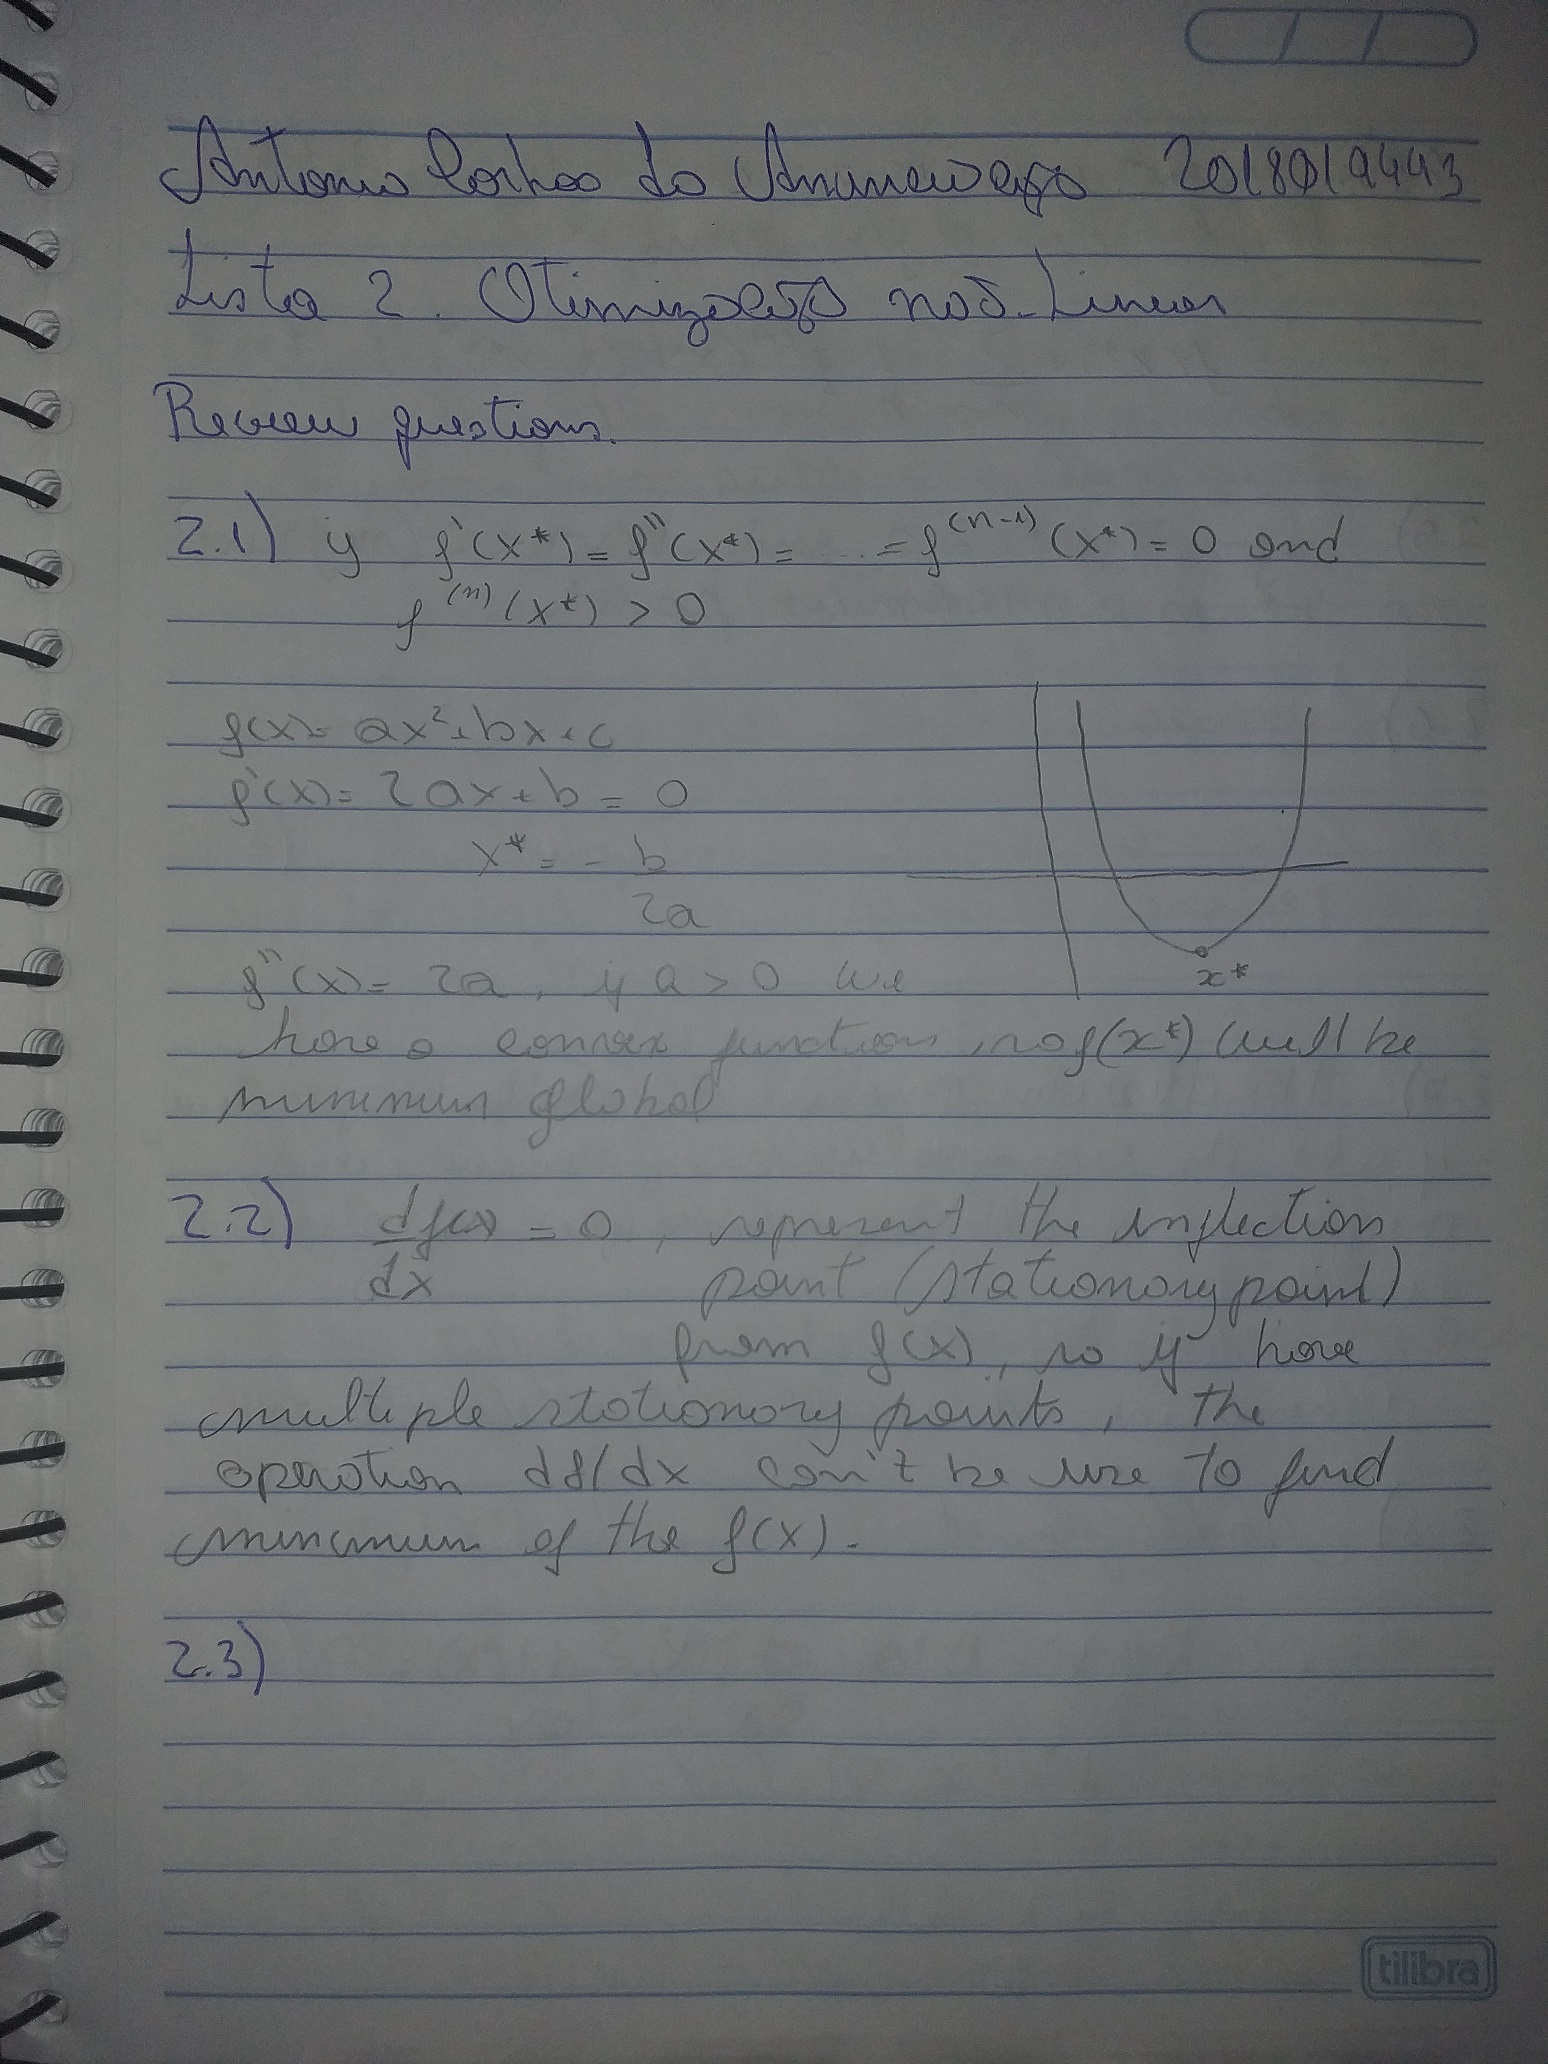 Antonio do Anunciação 2018019443
Lista 2. Otimização não-Linear
Review questions.
2.1) if f'(x*) = f''(x*) = ... = f^(n-1) (x*) = 0 and
f^(n) (x*) > 0
f(x) = ax² + bx + c
f'(x) = 2ax + b = 0
x* = - b
2a
x*
f''(x) = 2a, if a > 0 we
have a convex function, so f(x*) will be
minimum global
2.2) df(x) = 0, represent the inflection
dx point (stationary point)
from f(x), so if have
multiple stationary points, the
operation df/dx can't be use to find
minimum of the f(x).
2.3)
tilibra